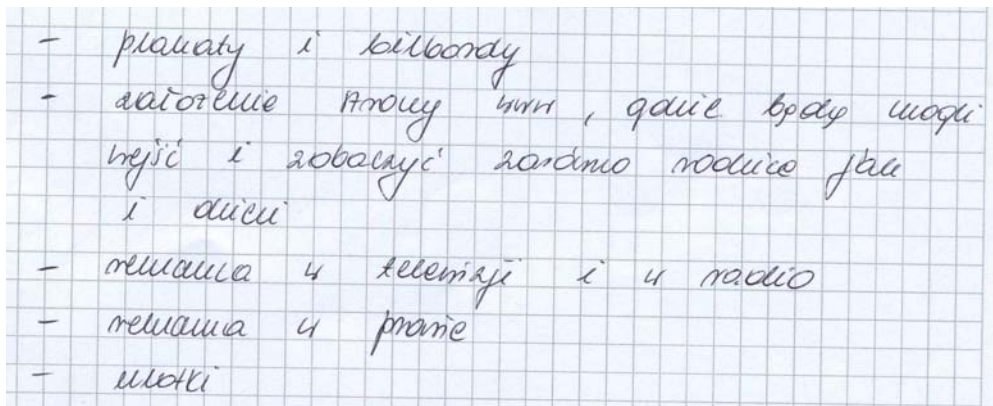 - plakaty i bilbordy
- założenie strony www, gdzie będą mogli
wejść i zobaczyć zarówno rodzice jak
i dzieci
- reklama w telewizji i w radio
- reklama w prasie
- ulotki